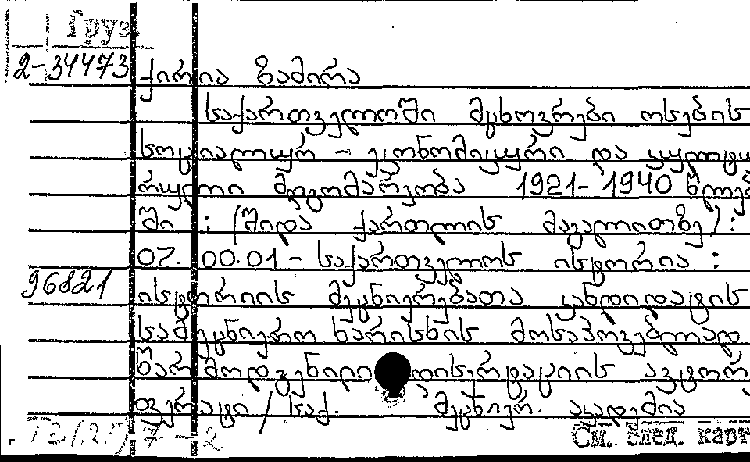 Груз.
2-34473 ქირია ზამირა
საქართველოში მცხოვრები ოსების
სოციალურ-ეკონომიკური და კულტუ
რული მდგომარეობა 1921-1940 წლებ
ში : (შიდა ქართლის მაგალითზე) :
07.00.01 - საქართველოს ისტორია :
96821
ისტორიის მეცნიერებათა კანდიდატის
სამეცნიერო ხარისხის მოსაპოვებლად
წარმოდგენილი დისერტაციის ავტორ
ეფერატი / საქ. მეცნიერ. აკადემია
См. след. карт